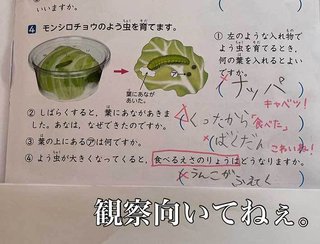 いいますか。
4 モンシロチョウのよう虫を育てます。
葉にあなが
あいた。
ア
① 左のような入れ物で
よう虫を育てるとき、
何の葉を入れるとよい
ですか。
(ナッパ)
キャベツ!
② しばらくすると、葉にあながあいて
きました。あなは、なぜできたのですか。
くったから
「食べた」
③ 葉の上にあるアは何ですか。
(ばくだん)
こわいね!
④ よう虫が大きくなってくると、
食べるえさのりょうはどうなりますか。
(うんこが ふえてく)
観察向いてねぇ。